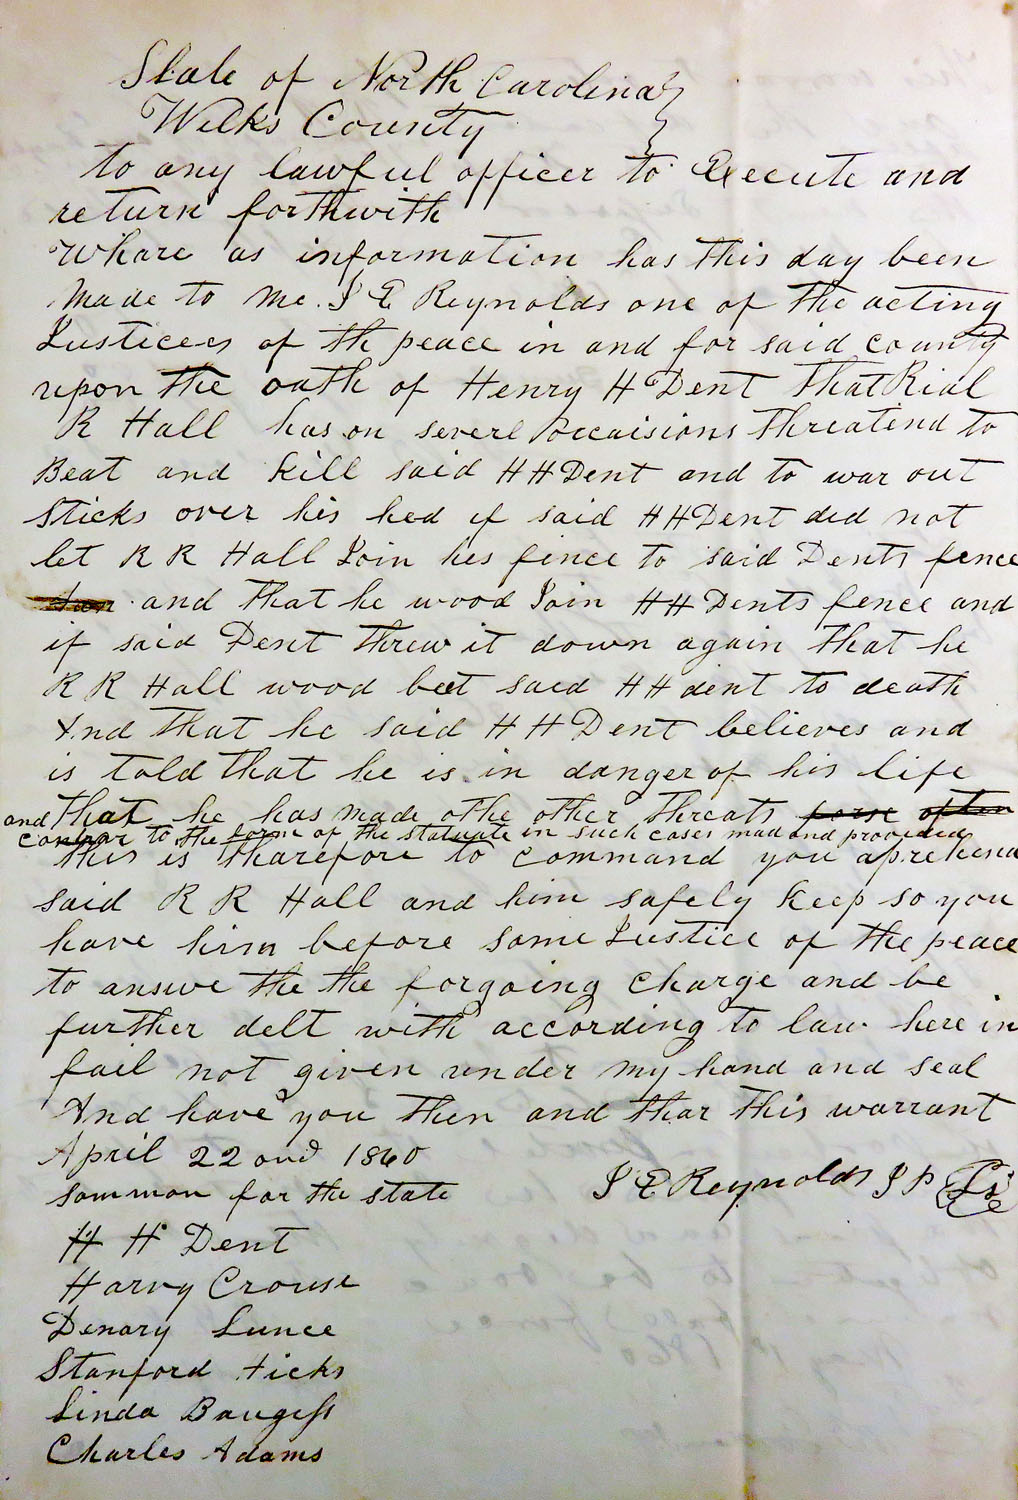 State of North Carolina }
Wilks County
to any lawful officer to Execute and
return forthwith
Whare as information has this day been
made to me J E Reynolds one of the acting
Justicees of th peace in and for said county
upon the oath of Henry H Dent that Rial
R Hall has on severl occaisions threatend to
Beat and kill said H H Dent and to war out
sticks over his hed if said H H Dent did not
let R R Hall Join his fince to said Dents fence
and that he wood Join H H Dents fence and
if said Dent threw it down again that he
R R Hall wood beet said H H dent to death
And that he said H H Dent believes and
is told that he is in danger of his life
and that he has made othe other threats
contrar to the form of the statuate in such cases mad and provided
this is tharefore to command you aprehend
said R R Hall and him safely keep so you
have him before some Justice of the peace
to answe the the forgoing charge and be
further delt with according to law here in
fail not given under my hand and seal
And have you then and thar this warrant
April 22 ond 1860
J E Reynolds J P
sommon for the state
H H Dent
Harvy Crouse
Denary Lunce
Stanford Hicks
Linda Baugess
Charles Adams